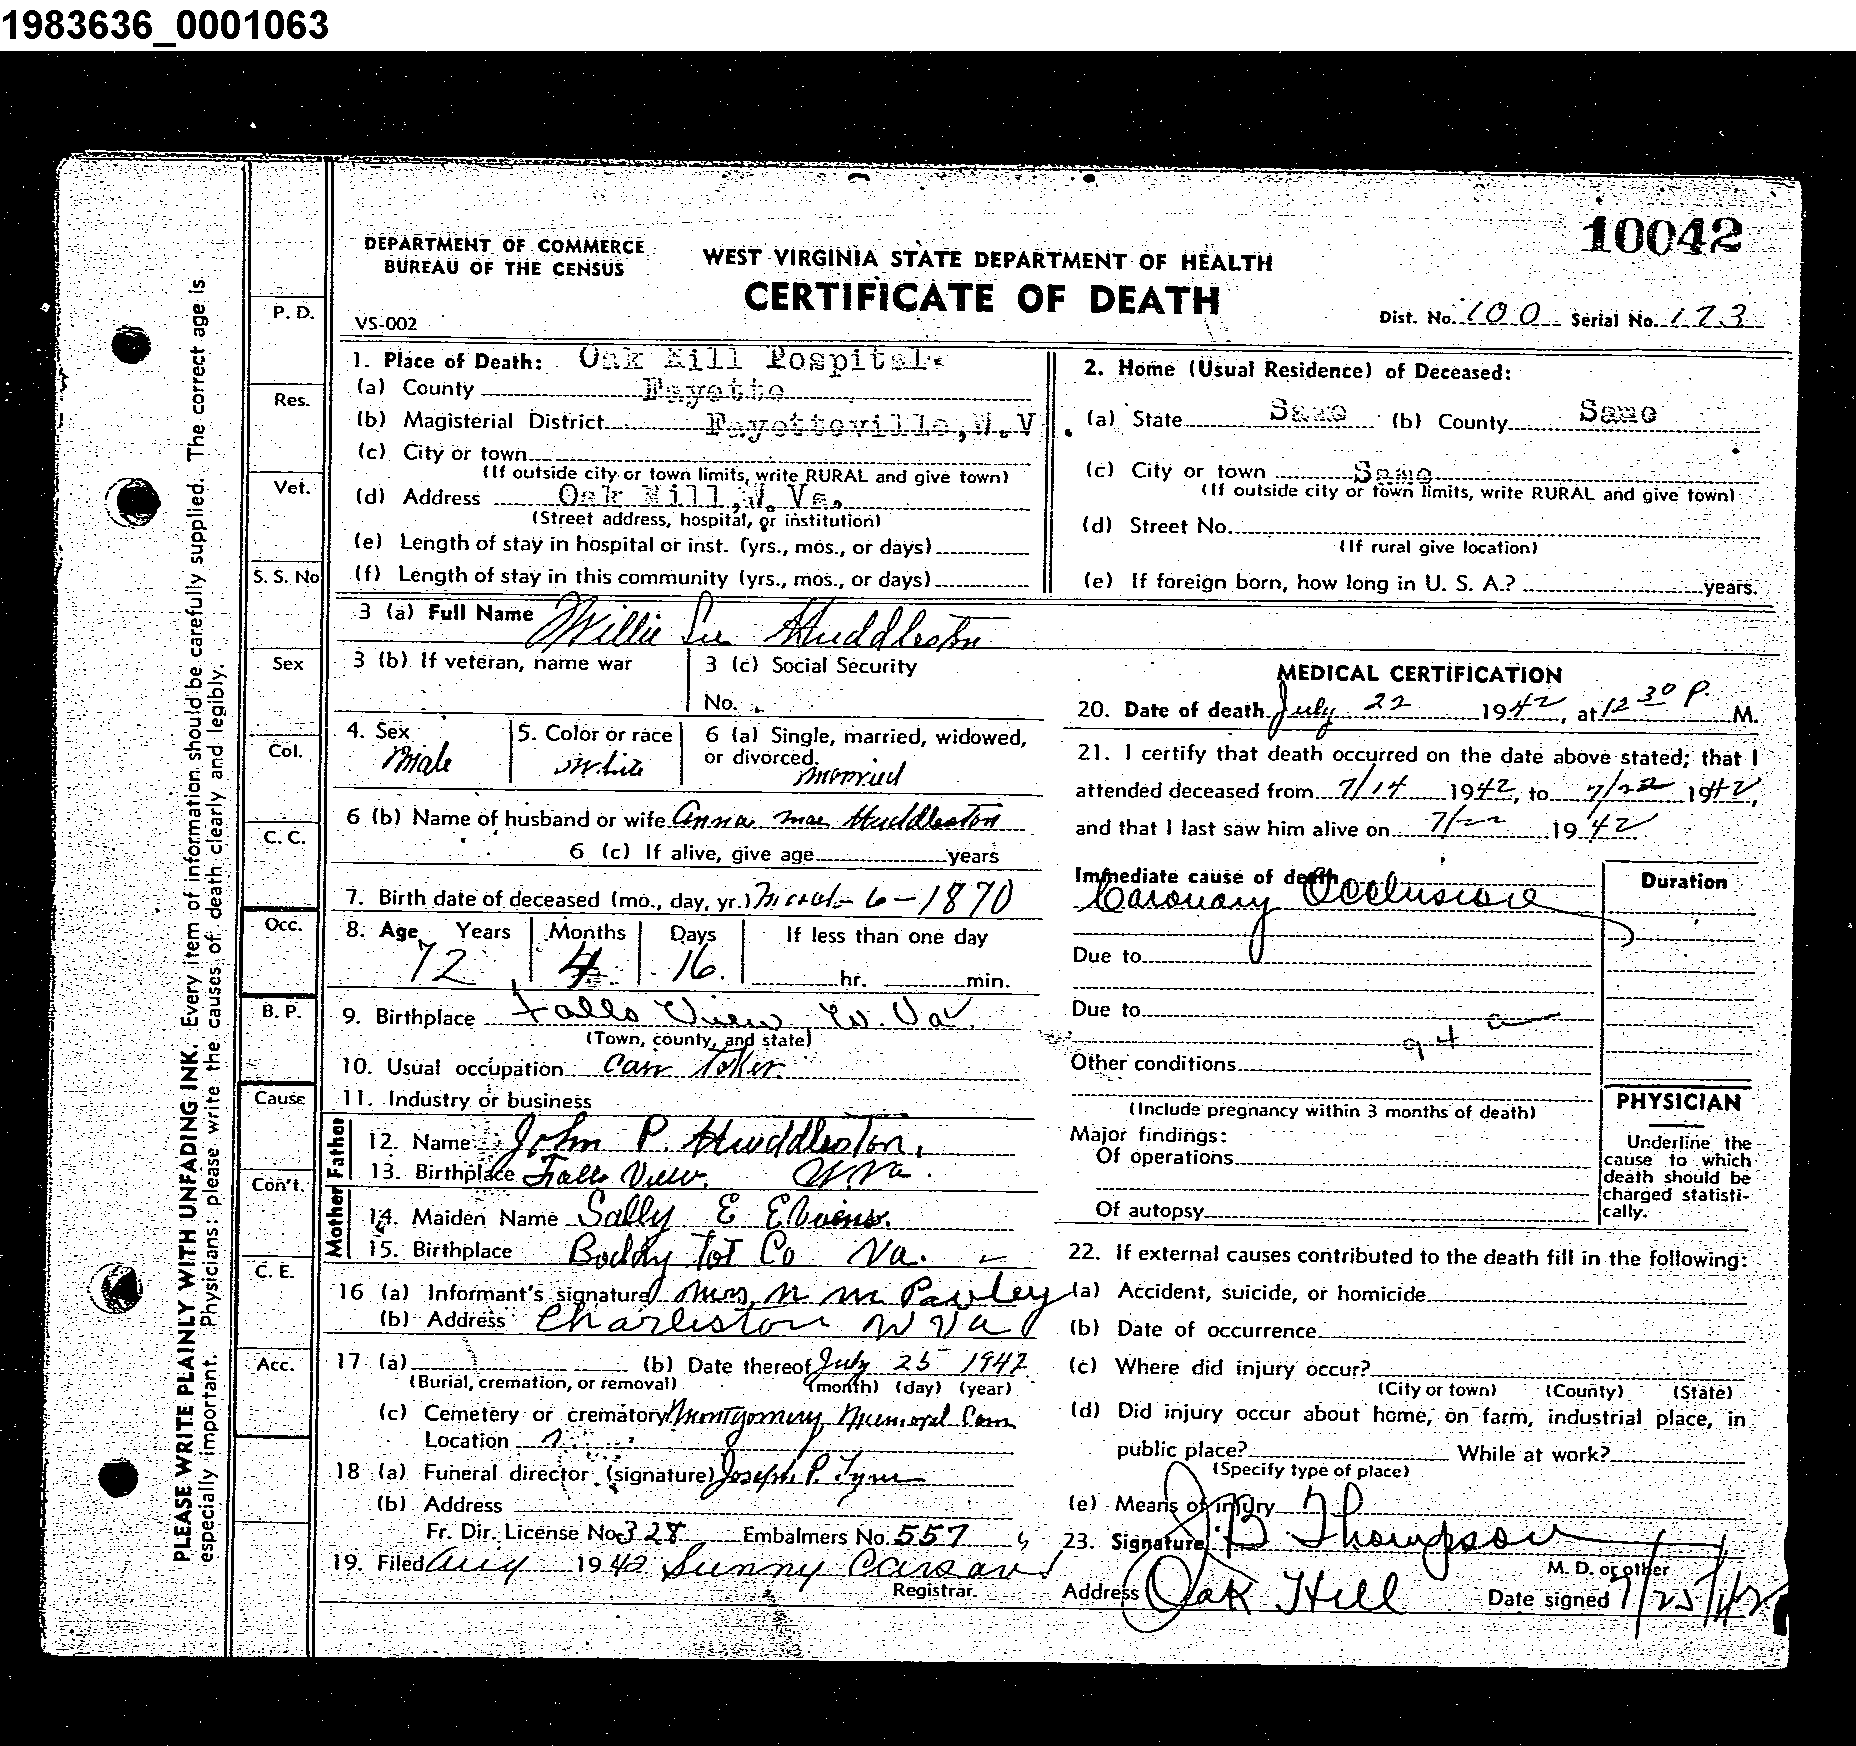 1983636_0001063
10042
DEPARTMENT OF COMMERCE
BUREAU OF THE CENSUS
WEST VIRGINIA STATE DEPARTMENT OF HEALTH
CERTIFICATE OF DEATH
VS-002
Dist. No. 100 Serial No. 173
1. Place of Death: Oak Hill Hospital.
(a) County Fayette
(b) Magisterial District Fayetteville, W.V.
(c) City or town
(If outside city or town limits, write RURAL and give town)
(d) Address Oak Hill, W. Va.
(Street address, hospital, or institution)
(e) Length of stay in hospital or inst. (yrs., mos., or days)
(f) Length of stay in this community (yrs., mos., or days)
2. Home (Usual Residence) of Deceased:
(a) State Same (b) County Same
(c) City or town Same
(If outside city or town limits, write RURAL and give town)
(d) Street No.
(If rural give location)
(e) If foreign born, how long in U. S. A.? years.
3 (a) Full Name Willie Huddleston
3 (b) If veteran, name war
3 (c) Social Security
No.
4. Sex Male
5. Color or race White
6 (a) Single, married, widowed,
or divorced. married
6 (b) Name of husband or wife Anna Mae Huddleston
6 (c) If alive, give age years
7. Birth date of deceased (mo., day, yr.) March 6 - 1870
8. Age Years Months Days If less than one day
72 4 16 hr. min.
9. Birthplace Falls View, W. Va.
(Town, county, and state)
10. Usual occupation
11. Industry or business
Father
12. Name John P. Huddleston.
13. Birthplace Falls View. W Va.
Mother
14. Maiden Name Sally E
15. Birthplace Va.
16 (a) Informant's signature Mrs. N M Pauley
(b) Address Charleston W Va
17 (a) (b) Date thereof July 25 1942
(Burial, cremation, or removal) (month) (day) (year)
(c) Cemetery or crematory Montgomery
Location
18 (a) Funeral director (signature) Joseph P. Tyree
(b) Address
Fr. Dir. License No. 328 Embalmers No. 557
19. Filed Aug 1942 Sunny Carson
Registrar.
MEDICAL CERTIFICATION
20. Date of death July 22 1942, at 12 30 P. M.
21. I certify that death occurred on the date above stated; that I
attended deceased from 7/14 1942, to 7/22 1942,
and that I last saw him alive on 7/22 1942
Immediate cause of death Coronary Occlusion
Duration
Due to
Due to
94 a
Other conditions
(Include pregnancy within 3 months of death)
Major findings:
Of operations
Of autopsy
PHYSICIAN
Underline the
cause to which
death should be
charged statisti-
cally.
22. If external causes contributed to the death fill in the following:
(a) Accident, suicide, or homicide
(b) Date of occurrence
(c) Where did injury occur?
(City or town) (County) (State)
(d) Did injury occur about home, on farm, industrial place, in
public place? While at work?
(Specify type of place)
(e) Means of injury
23. Signature Thompson
M. D. or other
Address Oak Hill Date signed 7/25/42
P. D.
Res.
Vet.
S. S. No
Sex
Col.
C. C.
Occ.
B. P.
Cause
Con't.
C. E.
Acc.
PLEASE WRITE PLAINLY WITH UNFADING INK. Every item of information should be carefully supplied. The correct age is
especially important. Physicians: please write the causes of death clearly and legibly.